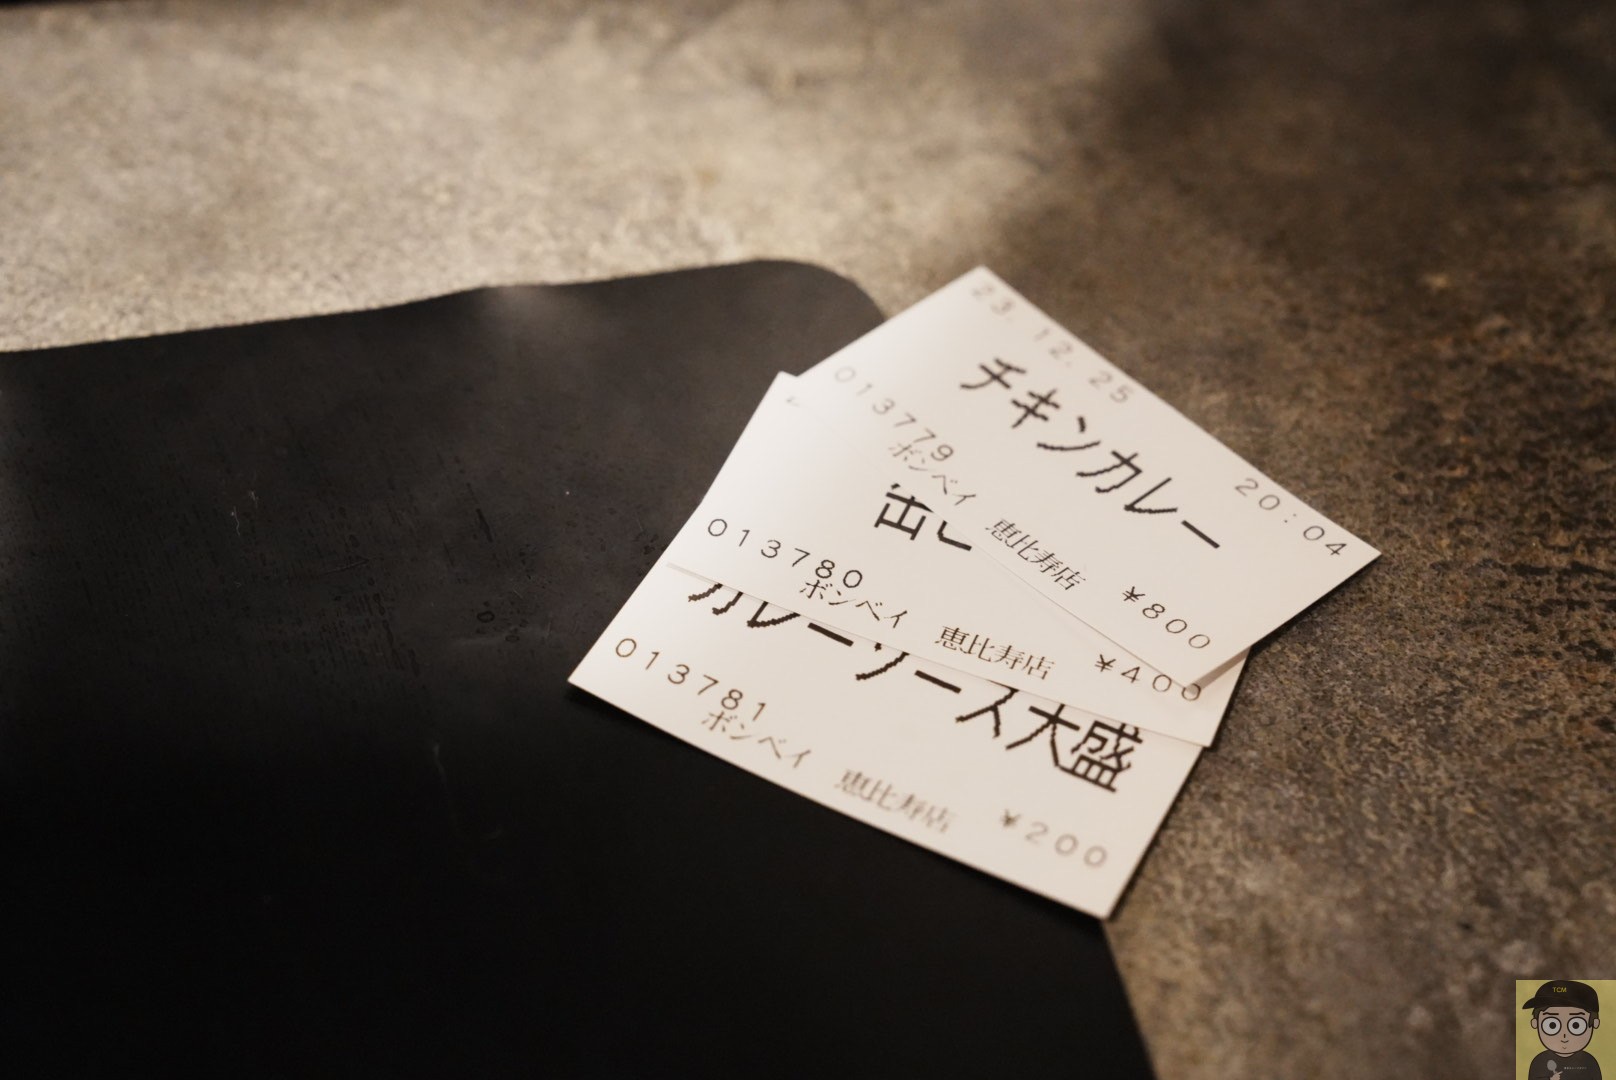 23.12.25
チキンカレー
20:04
013779
ボンベイ 恵比寿店 ¥800
出し
013780
ボンベイ 恵比寿店 ¥400
カレーソース大盛
013781
ボンベイ 恵比寿店 ¥200
TCM